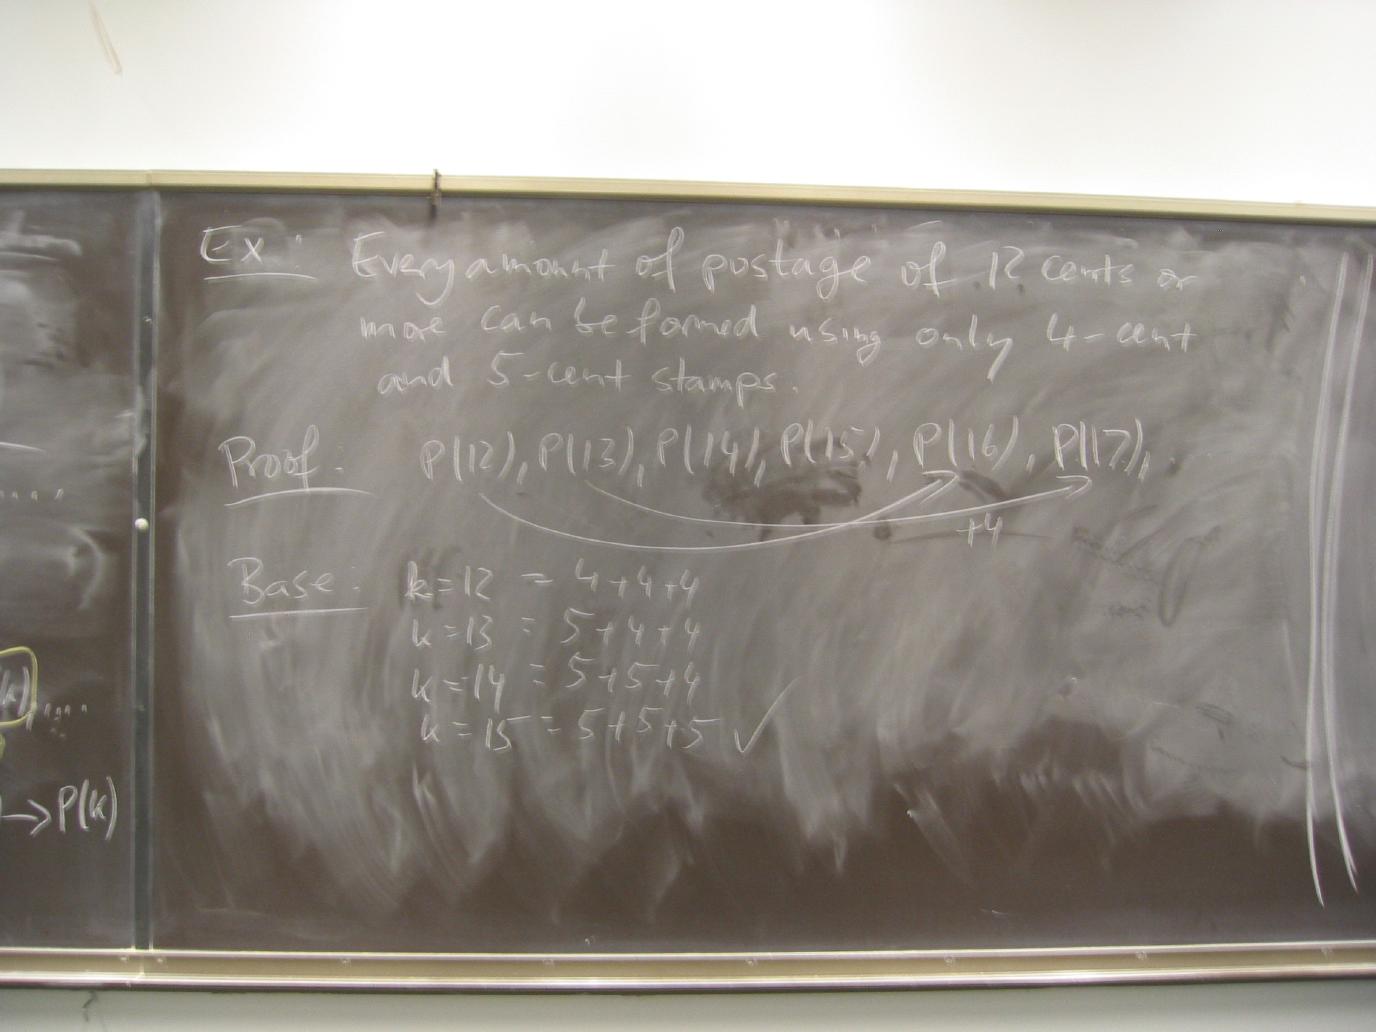 Ex: Every amount of postage of 12 cents or
more can be formed using only 4-cent
and 5-cent stamps.
Proof: P(12), P(13), P(14), P(15), P(16), P(17),
+4
Base: k=12 = 4+4+4
k=13 = 5+4+4
k=14 = 5+5+4
k=15 = 5+5+5 ✓
k)
→P(k)